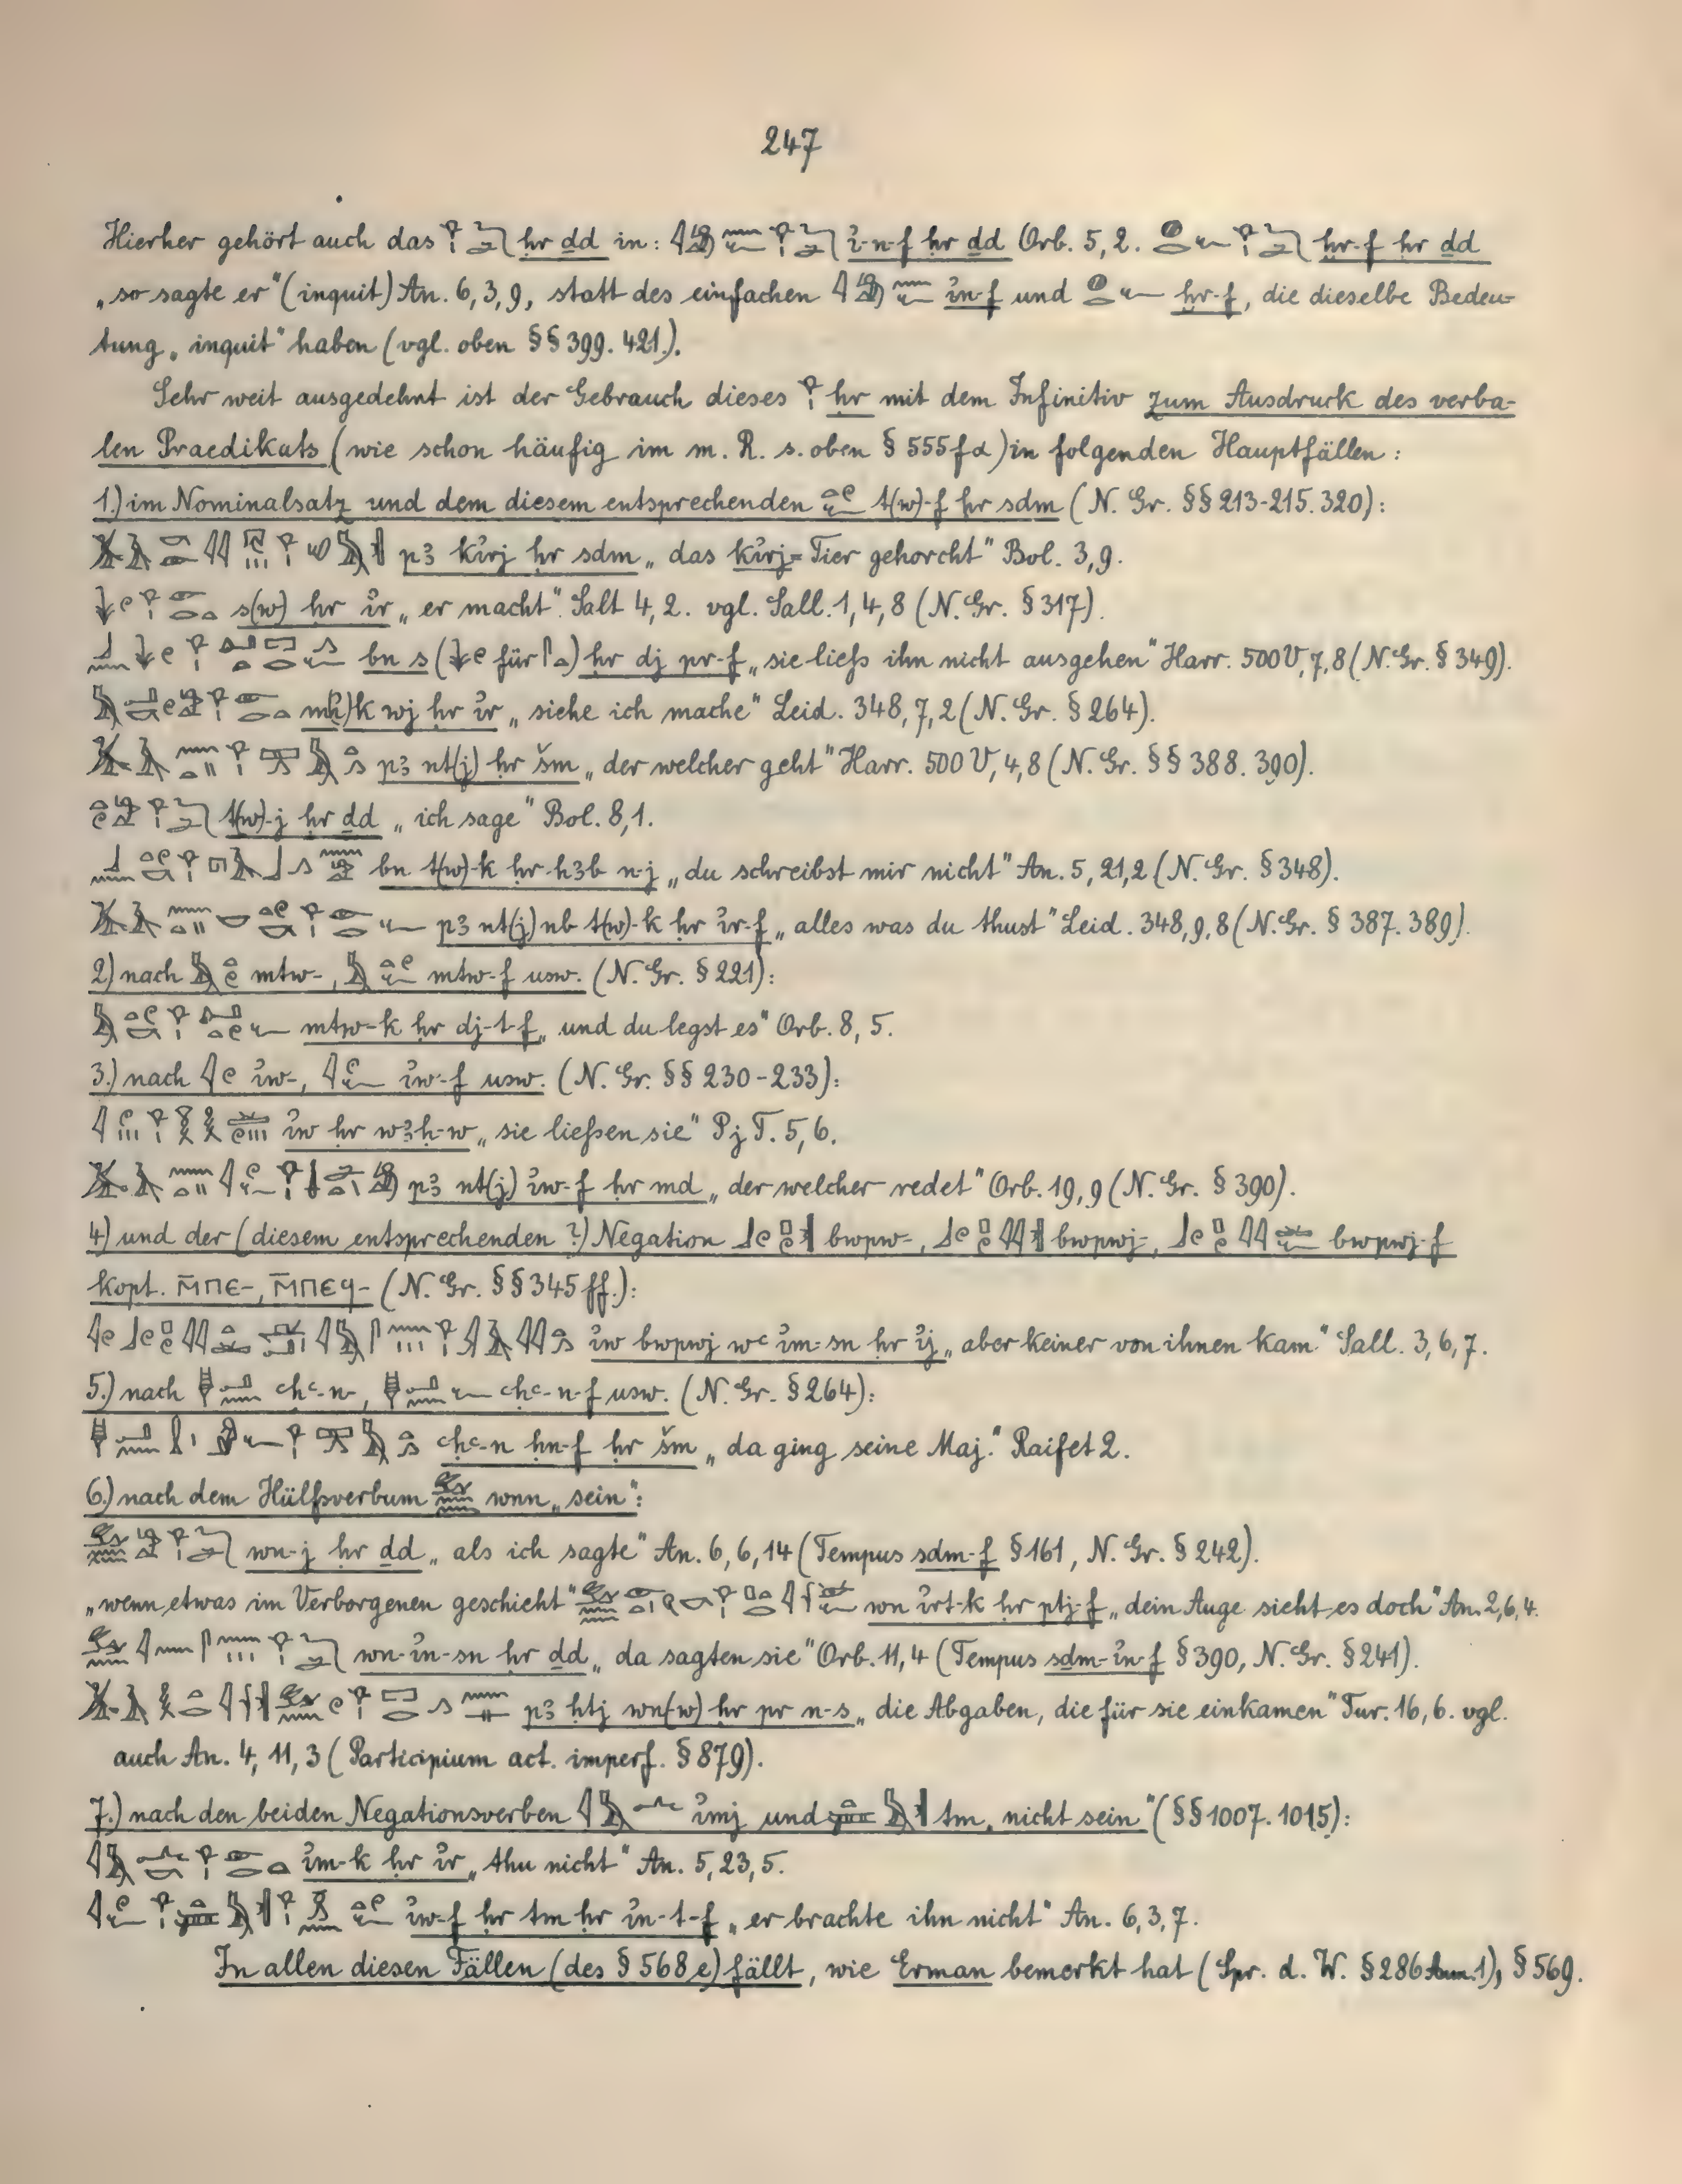 247
Hierher gehört auch das ḥr ḏd in: i̓-n-f ḥr ḏd Orb. 5, 2. ḫr-f ḥr ḏd
„so sagte er" (inquit) An. 6, 3, 9, statt des einfachen i̓n-f und ḫr-f, die dieselbe Bedeu-
tung „inquit" haben (vgl. oben §§ 399. 421.).
Sehr weit ausgedehnt ist der Gebrauch dieses ḥr mit dem Infinitiv zum Ausdruck des verba-
len Praedikats (wie schon häufig im m. R. s. oben § 555fα) in folgenden Hauptfällen:
1.) im Nominalsatz und dem diesem entsprechenden t(w)-f ḥr sdm (N. Gr. §§ 213-215. 320):
p3 ki̓rj ḥr sdm „das ki̓rj-Tier gehorcht" Bol. 3, 9.
s(w) ḥr i̓r „er macht" Salt 4, 2. vgl. Sall. 1, 4, 8 (N. Gr. § 317).
bn s (für) ḥr dj pr-f „sie liefs ihn nicht ausgehen" Harr. 500 V, 7, 8 (N. Gr. § 349).
mk wj ḥr i̓r „siehe ich mache" Leid. 348, 7, 2 (N. Gr. § 264).
p3 nt(j) ḥr šm „der welcher geht" Harr. 500 V, 4, 8 (N. Gr. §§ 388. 390).
t(w)-j ḥr ḏd „ich sage" Bol. 8, 1.
bn t(w)-k ḥr h3b n-j „du schreibst mir nicht" An. 5, 21, 2 (N. Gr. § 348).
p3 nt(j) nb t(w)-k ḥr i̓r-f „alles was du thust" Leid. 348, 9, 8 (N. Gr. § 387. 389).
2) nach mtw-, mtw-f usw. (N. Gr. § 221):
mtw-k ḥr dj-t-f „und du legst es" Orb. 8, 5.
3.) nach i̓w-, i̓w-f usw. (N. Gr. §§ 230-233):
i̓w ḥr w3ḥ-w „sie liefsen sie" Pj T. 5, 6.
p3 nt(j) i̓w-f ḥr md „der welcher redet" Orb. 19, 9 (N. Gr. § 390).
4) und der (diesem entsprechenden?) Negation bwpw-, bwpwj-, bwpwj-f
kopt. ⲙ̄ⲡⲉ-, ⲙ̄ⲡⲉϥ- (N. Gr. §§ 345 ff.):
i̓w bwpwj wꜥ i̓m-sn ḥr i̓j „aber keiner von ihnen kam" Sall. 3, 6, 7.
5.) nach ꜥḥꜥ-n-, ꜥḥꜥ-n-f usw. (N. Gr. § 264):
ꜥḥꜥ-n ḥn-f ḥr šm „da ging seine Maj." Raifet 2.
6.) nach dem Hülfsverbum wnn „sein":
wn-j ḥr ḏd „als ich sagte" An. 6, 6, 14 (Tempus sdm-f § 161, N. Gr. § 242).
„wenn etwas im Verborgenen geschieht" wn i̓rt-k ḥr ptj-f „dein Auge sieht es doch" An. 2, 6, 4.
wn-i̓n-sn ḥr ḏd „da sagten sie" Orb. 11, 4 (Tempus sdm-i̓n-f § 390, N. Gr. § 241).
p3 ḥtj wn(w) ḥr pr n-s „die Abgaben, die für sie einkamen" Tur. 16, 6. vgl.
auch An. 4, 11, 3 (Participium act. imperf. § 879).
7.) nach den beiden Negationsverben i̓mj und tm „nicht sein" (§§ 1007. 1015):
i̓m-k ḥr i̓r „thu nicht" An. 5, 23, 5.
i̓w-f ḥr tm ḥr i̓n-t-f „er brachte ihn nicht" An. 6, 3, 7.
In allen diesen Fällen (des § 568 e) fällt, wie Erman bemerkt hat (Spr. d. W. § 286 Anm. 1), § 569.